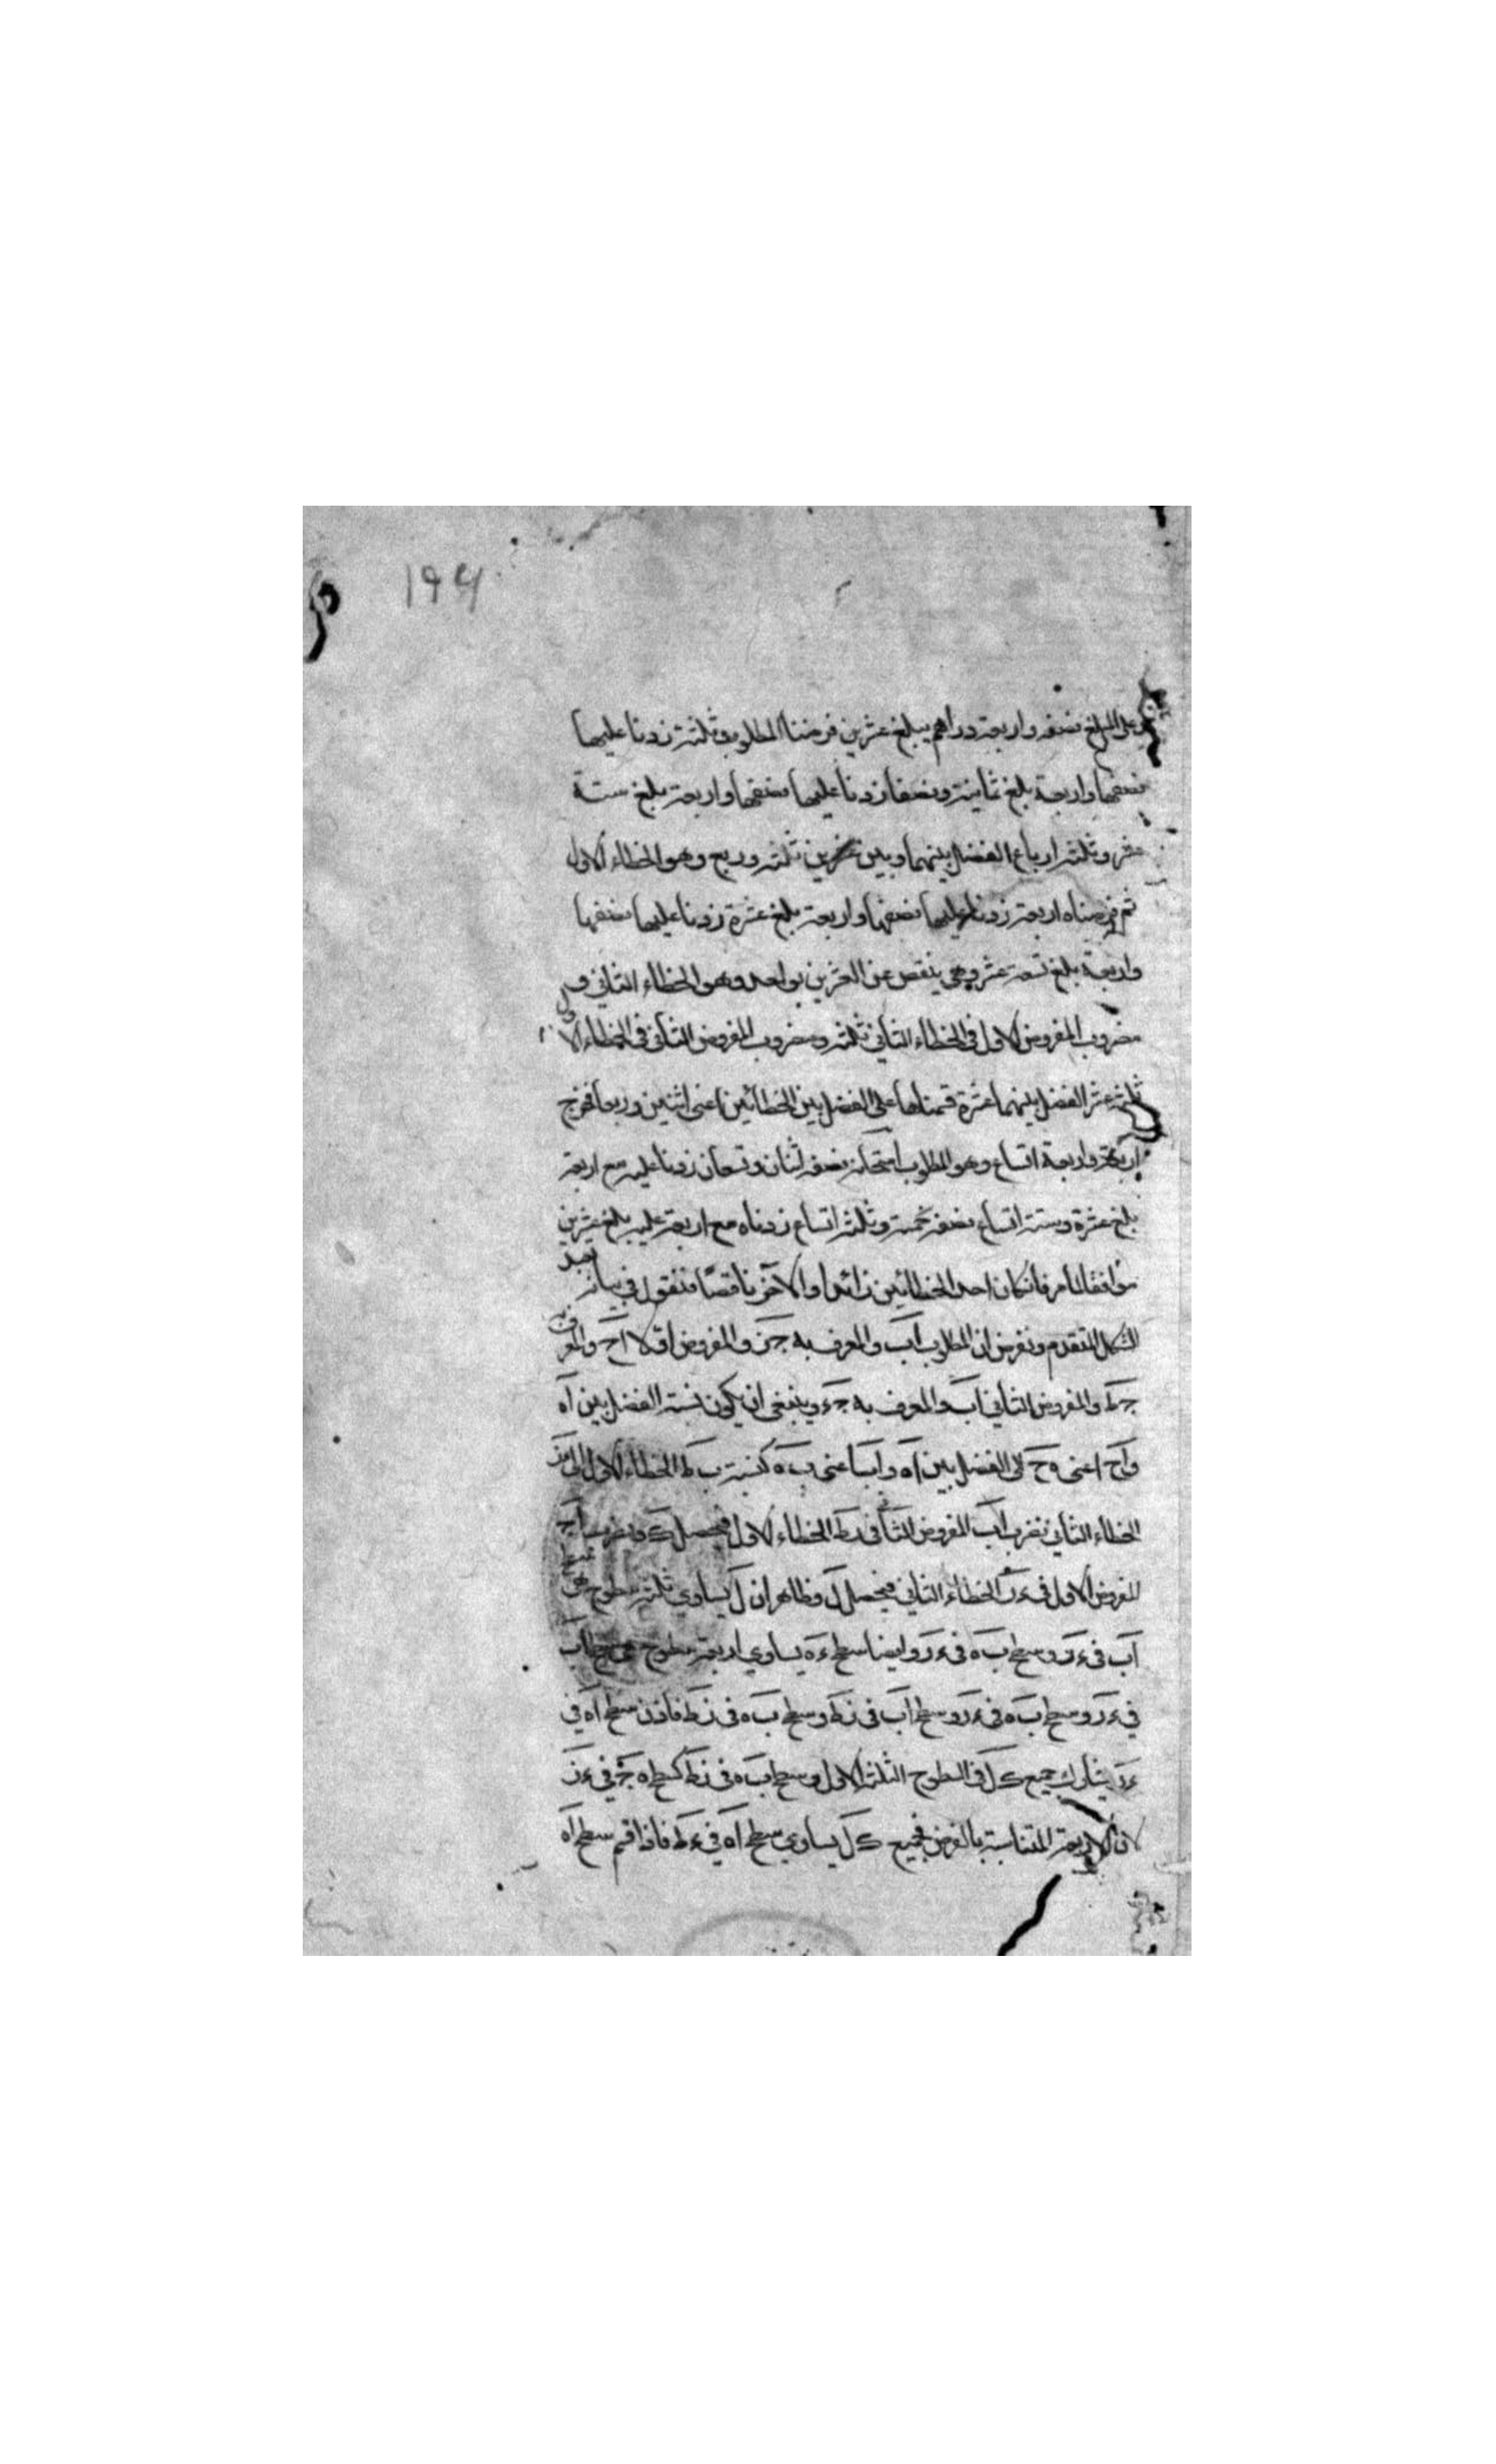 ۱۹۴
وعلى المبلغ نصفه واربعة دراهم يبلغ عشرين فرضنا المطلوب ثلثة زدنا عليها
نصفها واربعة بلغ ثمانية ونصفا زدنا عليها نصفها واربعة بلغ ستة
عشر وثلثة ارباع الفضل بينهما وبين عشرين ثلثة وربع وهو الخطاء الاول
ثم فرضناه اربعة زدنا عليها نصفها واربعة بلغ عشرة زدنا عليها نصفها
واربعة بلغ تسعة عشر وهي ينقص عن العشرين بواحد وهو الخطاء الثاني و
مضروب المفروض الاول في الخطاء الثاني ثلثة ومضروب المفروض الثاني في الخطاء الاول
ثلثة عشر الفضل بينهما عشرة قسمناها على الفضل بين الخطائين اعني اثنين وربعا فخرج
اربعة واربعة اتساع وهو المطلوب امتحانه نصفه اثنان وتسعان زدنا عليه مع اربعة
بلغ عشرة وستة اتساع نصفه خمسة وثلثة اتساع زدناه مع اربعة عليه بلغ عشرين
موافقا لما مر فان كان احد الخطائين زائدا والآخر ناقصا فنقول في بيانه نعيد
الشكل المتقدم ونفرض ان المطلوب اب والمعرف به جز والمفروض اولا اح والمعرف
جط والمفروض الثاني اب والمعرف به جء وينبغي ان يكون نسبة الفضل بين اه
واح اعني ه ح الى الفضل بين اه و اب اعني ب ه كنسبة ب ط الخطاء الاول الى
الخطاء الثاني نضرب اب المفروض الثاني في ط الخطاء الاول فيحصل ك ونضرب اح
المفروض الاول في ء ز الخطاء الثاني فيحصل ل وظاهر ان ل يساوي ثلثة سطوح
اب في ء ز وسطح ب ه في ء ز وايضا سطح ء ه يساوي اربعة سطوح هي سطح اب
في ء ز وسطح ب ه في ء ز وسطح اب في ز ط وسطح ب ه في ز ط فاذن سطح اه في
ء ز يشارك جميع ك ل في السطوح الثلثة الاول وسطح ب ه في ز ط كسطح ه ح في ء ز
لان الاربعة المتناسبة بالفرض فجميع ك ل يساوي سطح اه في ء ط فاذا قسم سطح اه